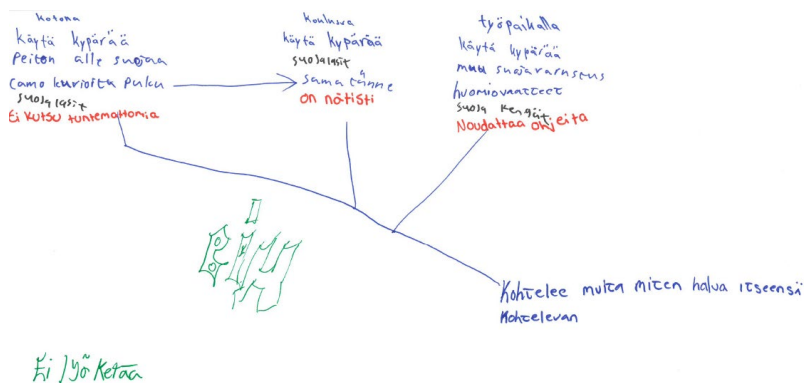 kotona
käytä kypärää
Peiton alle suojaa
Camo kurioitu puku
suojalasit
Ei kutsu tuntemattomia
koulussa
käytä kypärää
suojalasit
sama tänne
on nätisti
työpaikalla
käytä kypärää
muu suojavarustus
huomiovaatteet
suoja kengät
Noudattaa ohjeita
Kohtelee muita miten halua itseensä
Kohtelevan
Ei lyö ketää